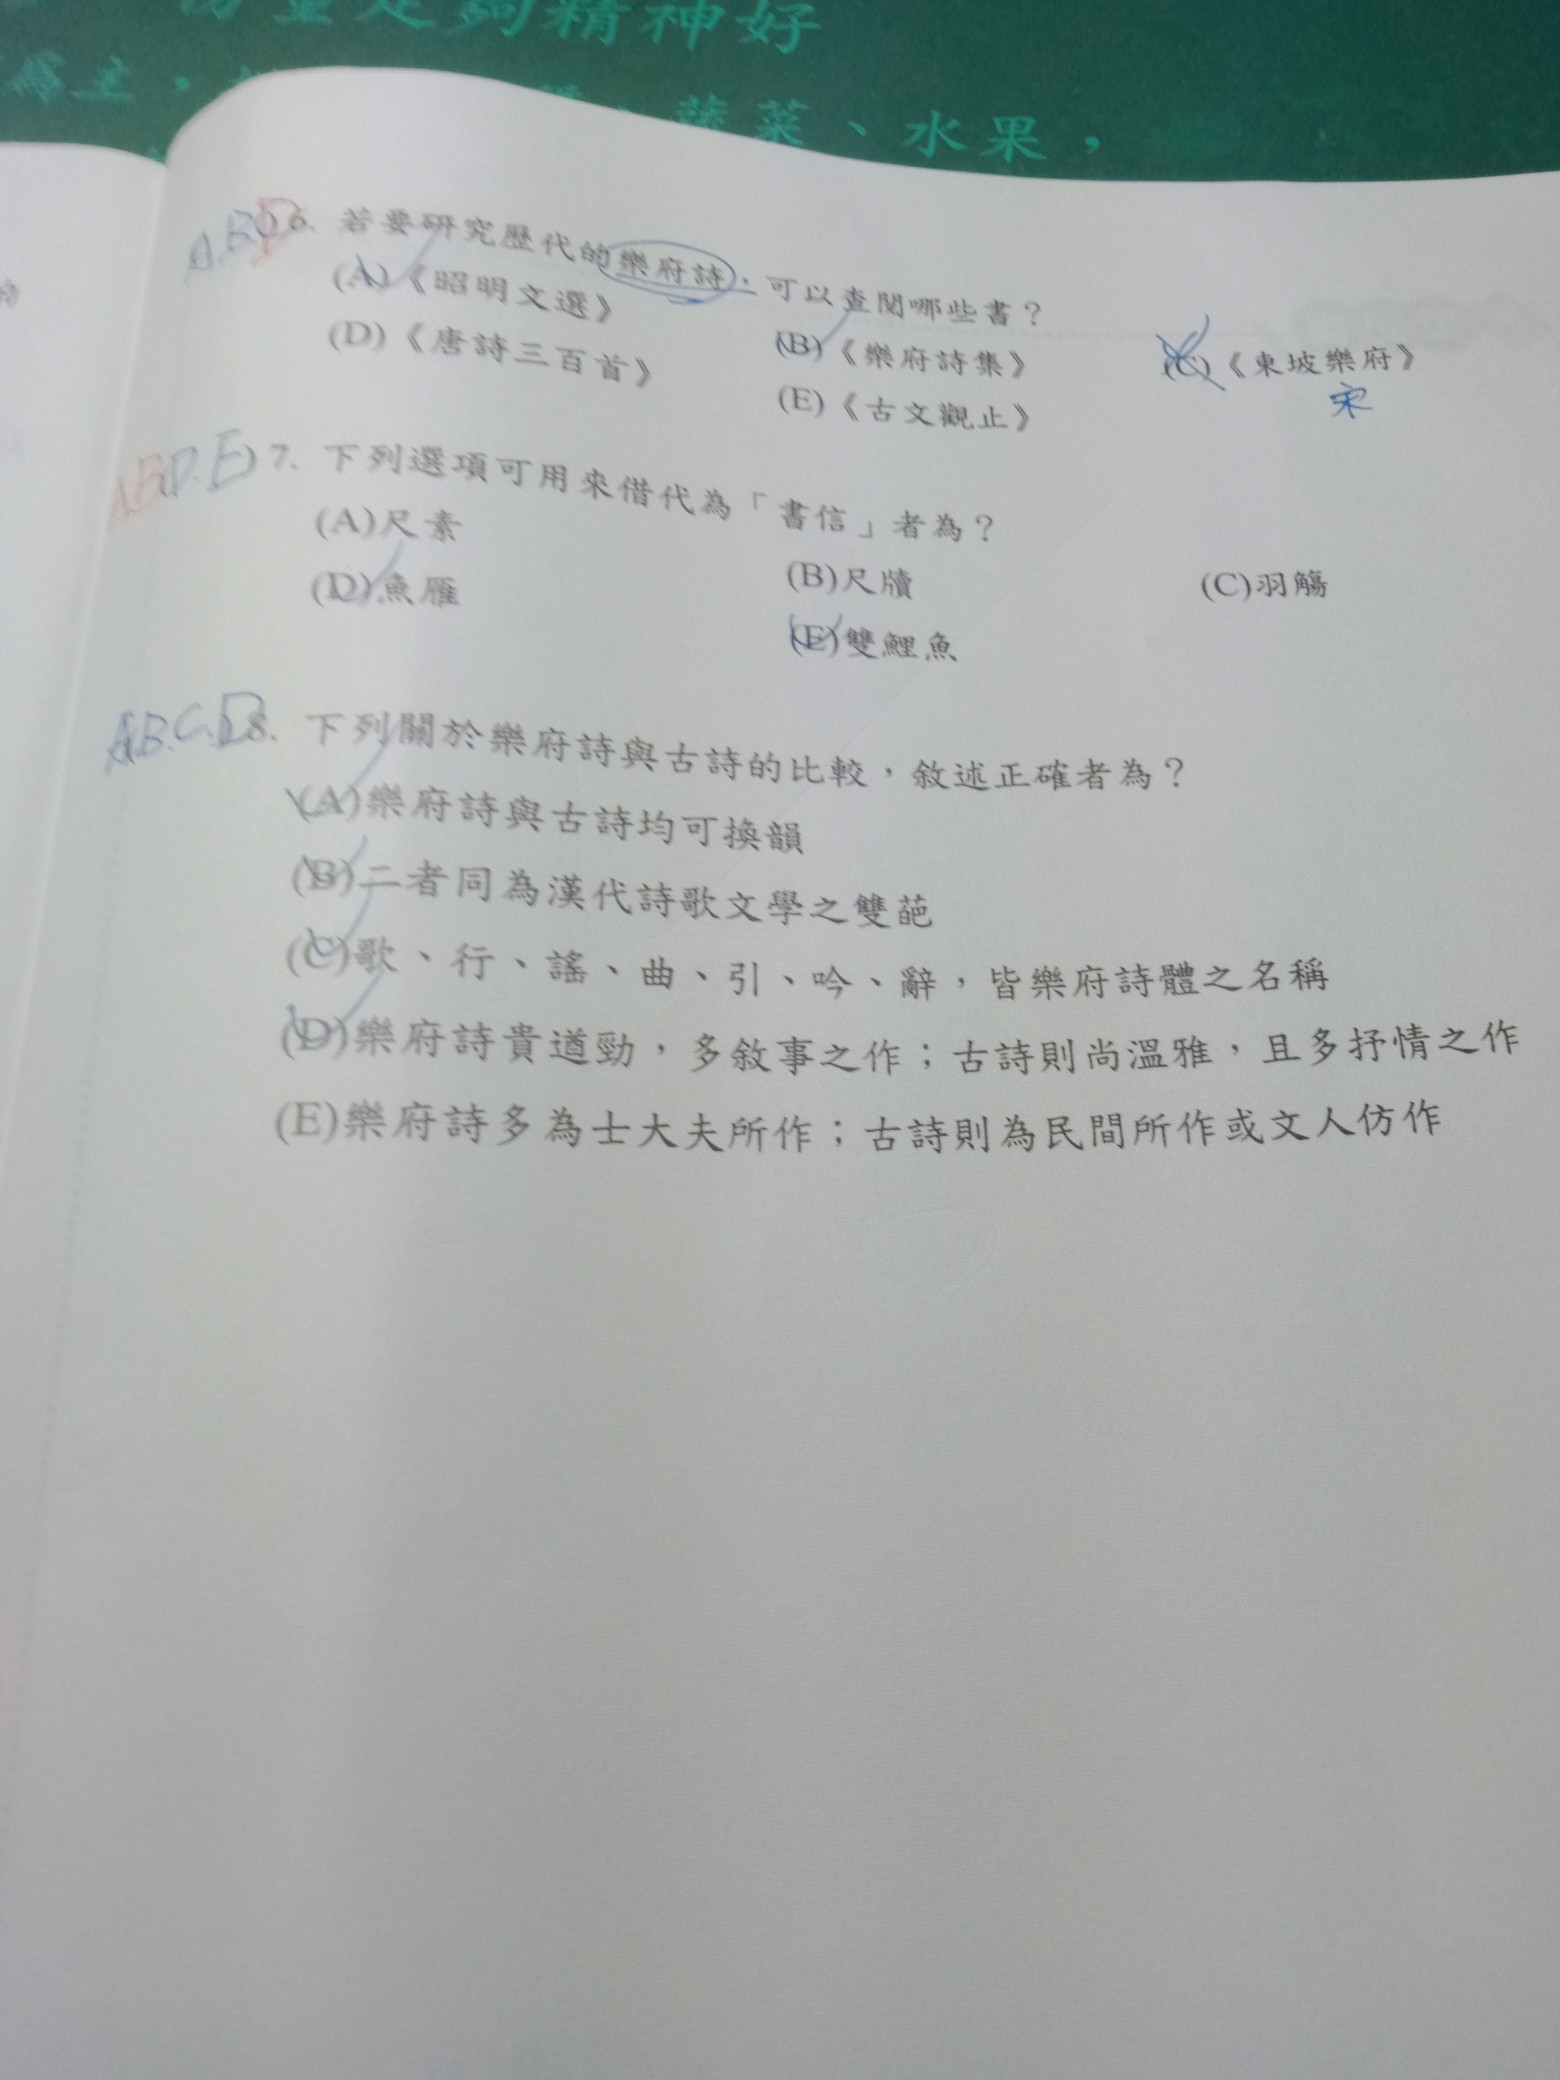 足夠精神好
蔬菜、水果，
A.B.D 6. 若要研究歷代的樂府詩，可以查閱哪些書？
(A)《昭明文選》 (B)《樂府詩集》 (C)《東坡樂府》
宋
(D)《唐詩三百首》 (E)《古文觀止》
A.B.D.E) 7. 下列選項可用來借代為「書信」者為？
(A)尺素 (B)尺牘 (C)羽觴
(D)魚雁 (E)雙鯉魚
A.B.C.D 8. 下列關於樂府詩與古詩的比較，敘述正確者為？
(A)樂府詩與古詩均可換韻
(B)二者同為漢代詩歌文學之雙葩
(C)歌、行、謠、曲、引、吟、辭，皆樂府詩體之名稱
(D)樂府詩貴遒勁，多敘事之作；古詩則尚溫雅，且多抒情之作
(E)樂府詩多為士大夫所作；古詩則為民間所作或文人仿作